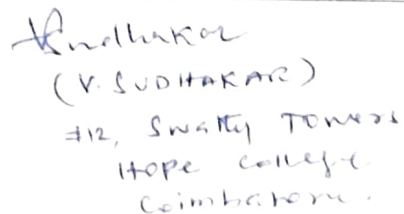 VSudhakar
(V. SUDHAKAR)
#12, Swathy Towers
Hope College
Coimbatore.